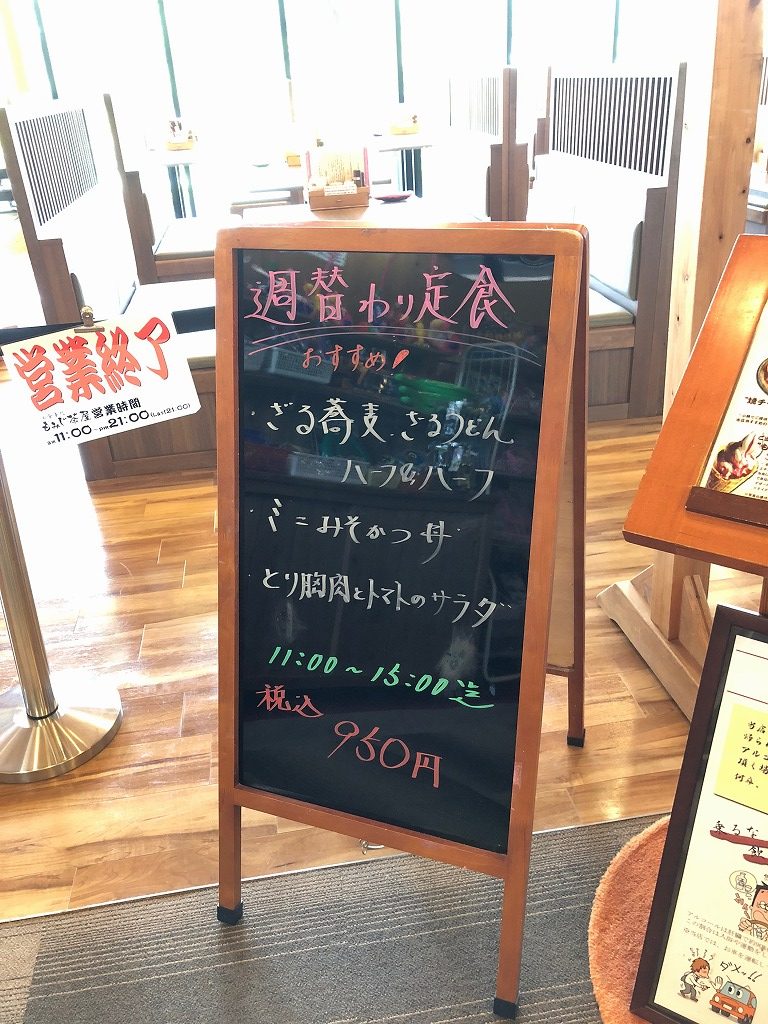 週替わり定食
おすすめ!
・ざる蕎麦、ざるうどん
ハーフ&ハーフ
・ミニみそかつ丼
・とり胸肉とトマトのサラダ
11:00~15:00迄
税込 950円
営業終了
もみじ茶屋営業時間
AM11:00~PM21:00(Last21:00)
ダメッ!!